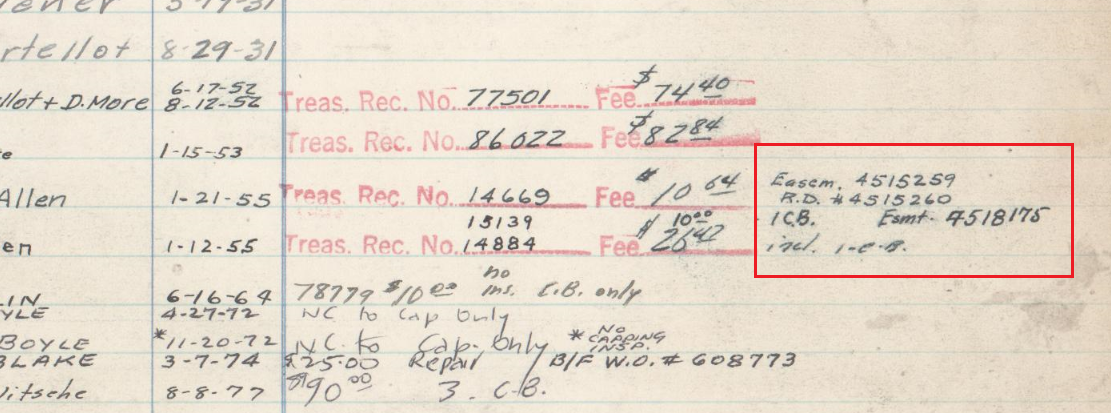 8-29-31
6-17-52
D. More 8-12-52 Treas. Rec. No. 77501 Fee $74 40
Treas. Rec. No. 86022 Fee $82 84
1-15-53
Allen 1-21-55 Treas. Rec. No. 14669 Fee $10 64 Easem. 4515259
R.D. # 4515260
15139 $10 00 1 C.B. Esmt. 4518175
en 1-12-55 Treas. Rec. No. 14884 Fee 26 42 incl. 1-C-B.
LIN 6-16-64 78779 $10 00 no ins. C.B. only
YLE 4-27-72 NC to Cap Only
BOYLE *11-20-72 NC. to Cap. Only * NO CAPPING INSP.
BLAKE 3-7-74 $25.00 Repair B/F W.O. # 608773
itsche 8-8-77 $90 00 3. C.B.